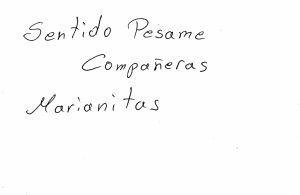 Sentido Pesame
Compañeras
Marianitas